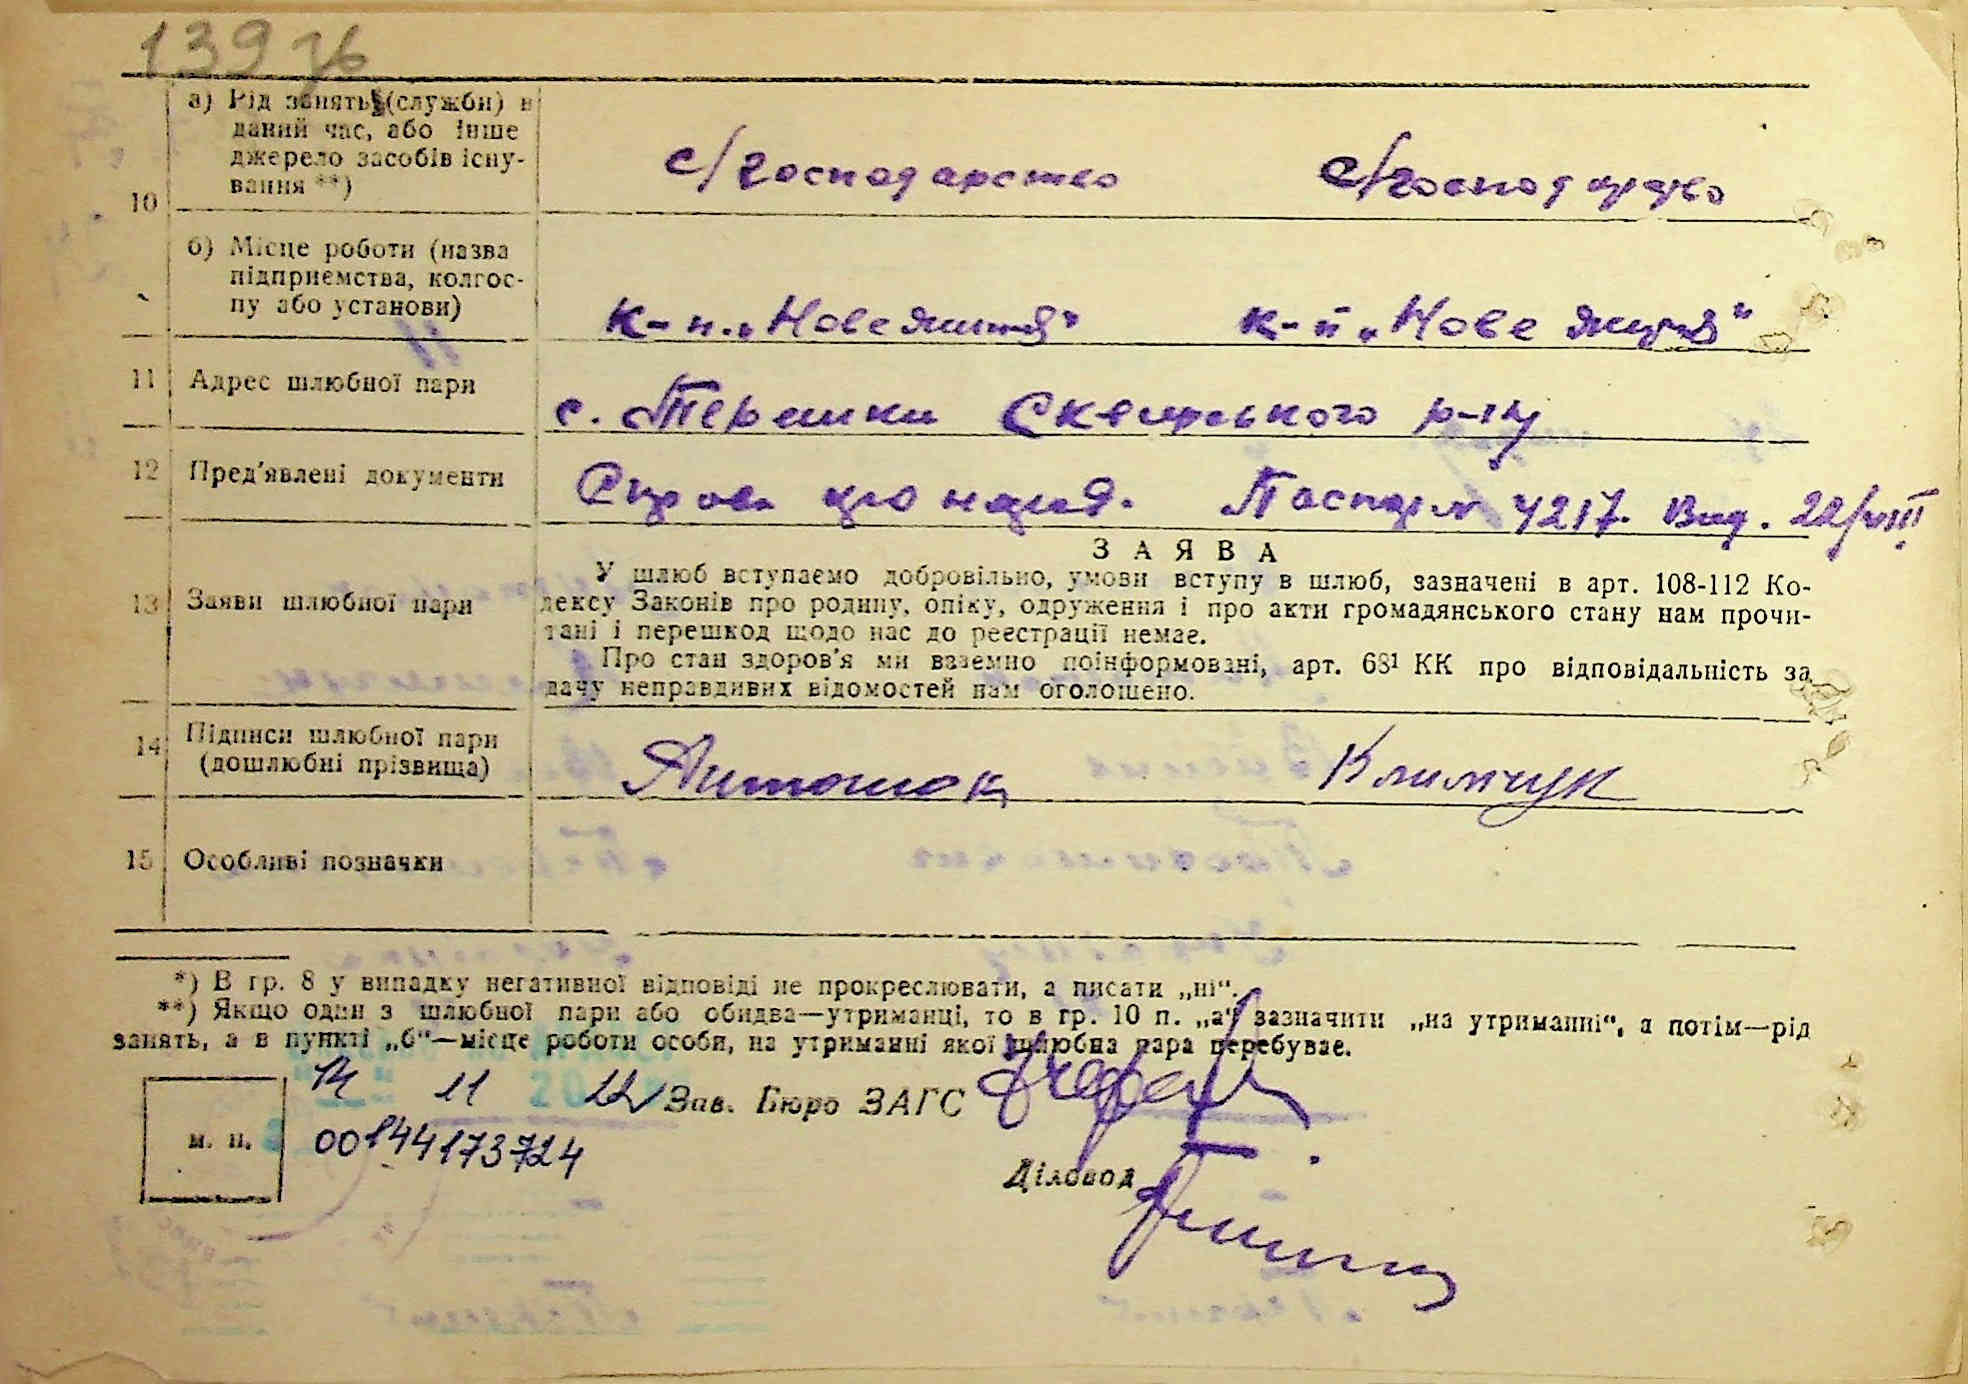 139 зв
а) Рід занять (служби) в
даний час, або інше
джерело засобів існу-
вання **)
с/господарство с/господарство
10
б) Місце роботи (назва
підприємства, колгос-
пу або установи)
к-п „Нове життя“ к-п „Нове життя“
11 Адрес шлюбної пари
с. Терешки Сквирського р-ну
12 Пред'явлені документи
Паспорт 4217. Вид. 22/VIII
З А Я В А
13 Заяви шлюбної пари
У шлюб вступаємо добровільно, умови вступу в шлюб, зазначені в арт. 108-112 Ко-
дексу Законів про родину, опіку, одруження і про акти громадянського стану нам прочи-
тані і перешкод щодо нас до реєстрації немає.
Про стан здоров'я ми взаємно поінформовані, арт. 68¹ КК про відповідальність за
дачу неправдивих відомостей нам оголошено.
14 Підписи шлюбної пари
(дошлюбні прізвища)
Антонюк Климчук
15 Особливі позначки
*) В гр. 8 у випадку негативної відповіді не прокреслювати, а писати „ні“.
**) Якщо один з шлюбної пари або обидва—утриманці, то в гр. 10 п. „а“ зазначити „на утриманні“, а потім—рід
занять, а в пункті „б“—місце роботи особи, на утриманні якої шлюбна пара перебуває.
14 11 20 Зав. Бюро ЗАГС
м. п. 00144173724
Діловод